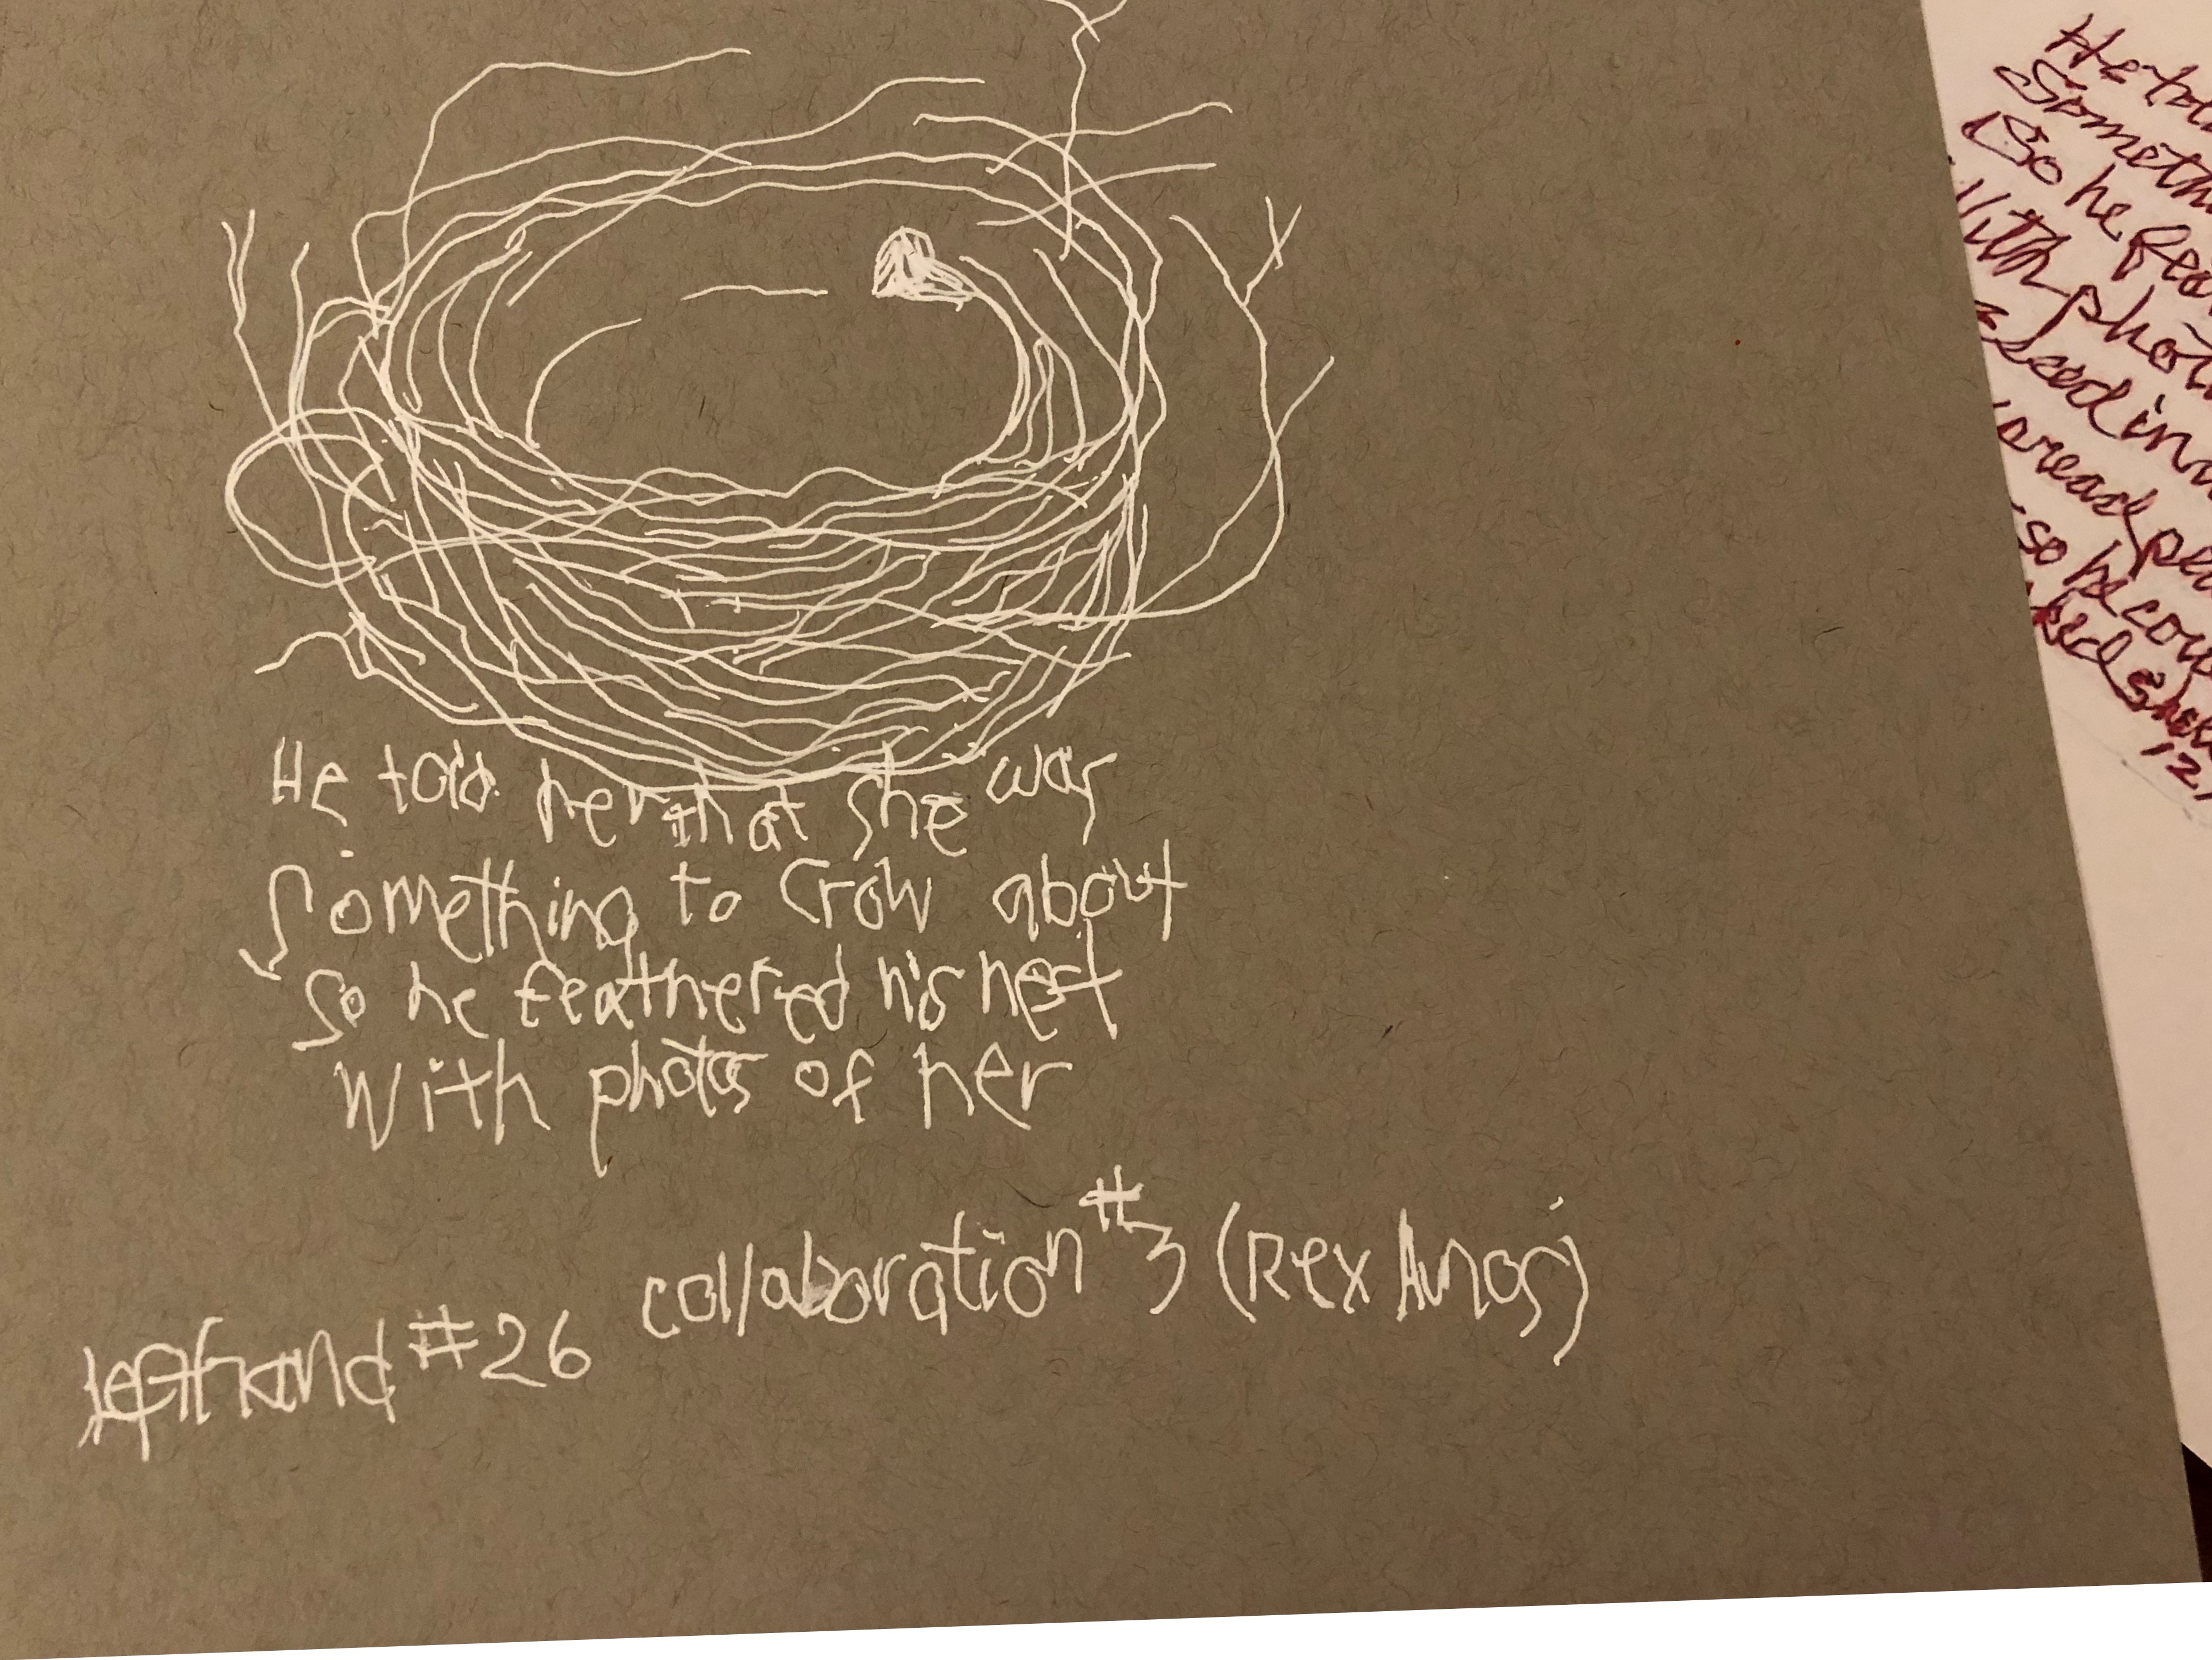 He told her that she was
Something to Crow about
So he feathered his nest
With photos of her
collaboration #3 (Rex Amos)
lefthand #26
He
Someth
So he fea
With phot
seed in
pread
so he cou